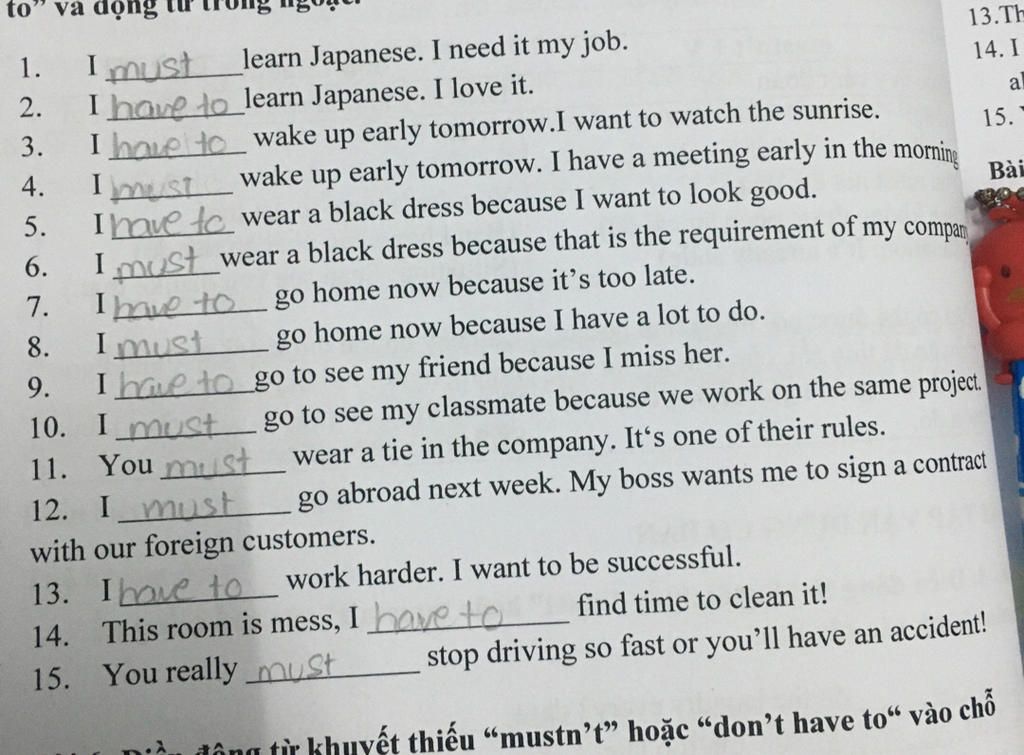 to” và động từ trong ngoặc.
1. I must learn Japanese. I need it my job.
2. I have to learn Japanese. I love it.
3. I have to wake up early tomorrow.I want to watch the sunrise.
4. I must wake up early tomorrow. I have a meeting early in the morning
5. I have to wear a black dress because I want to look good.
6. I must wear a black dress because that is the requirement of my company
7. I have to go home now because it’s too late.
8. I must go home now because I have a lot to do.
9. I have to go to see my friend because I miss her.
10. I must go to see my classmate because we work on the same project.
11. You must wear a tie in the company. It‘s one of their rules.
12. I must go abroad next week. My boss wants me to sign a contract
with our foreign customers.
13. I have to work harder. I want to be successful.
14. This room is mess, I have to find time to clean it!
15. You really must stop driving so fast or you’ll have an accident!
động từ khuyết thiếu “mustn’t” hoặc “don’t have to“ vào chỗ
13.Th
14. I
al
15.
Bài